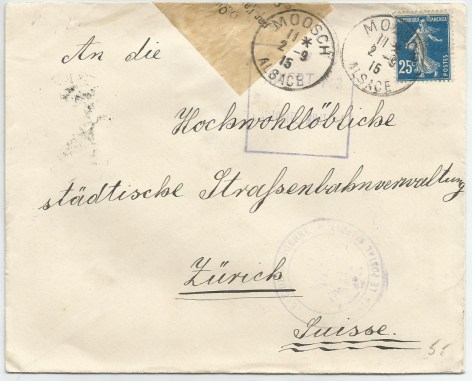 An die
MOOSCH
11 *
2 - 9
15
ALSACE
MO
11
2 - 9
15
ALSACE
FRANÇAISE
25c
POSTES
Hochwohllöbliche
städtische Strassenbahnverwaltung
Zürich
Suisse.